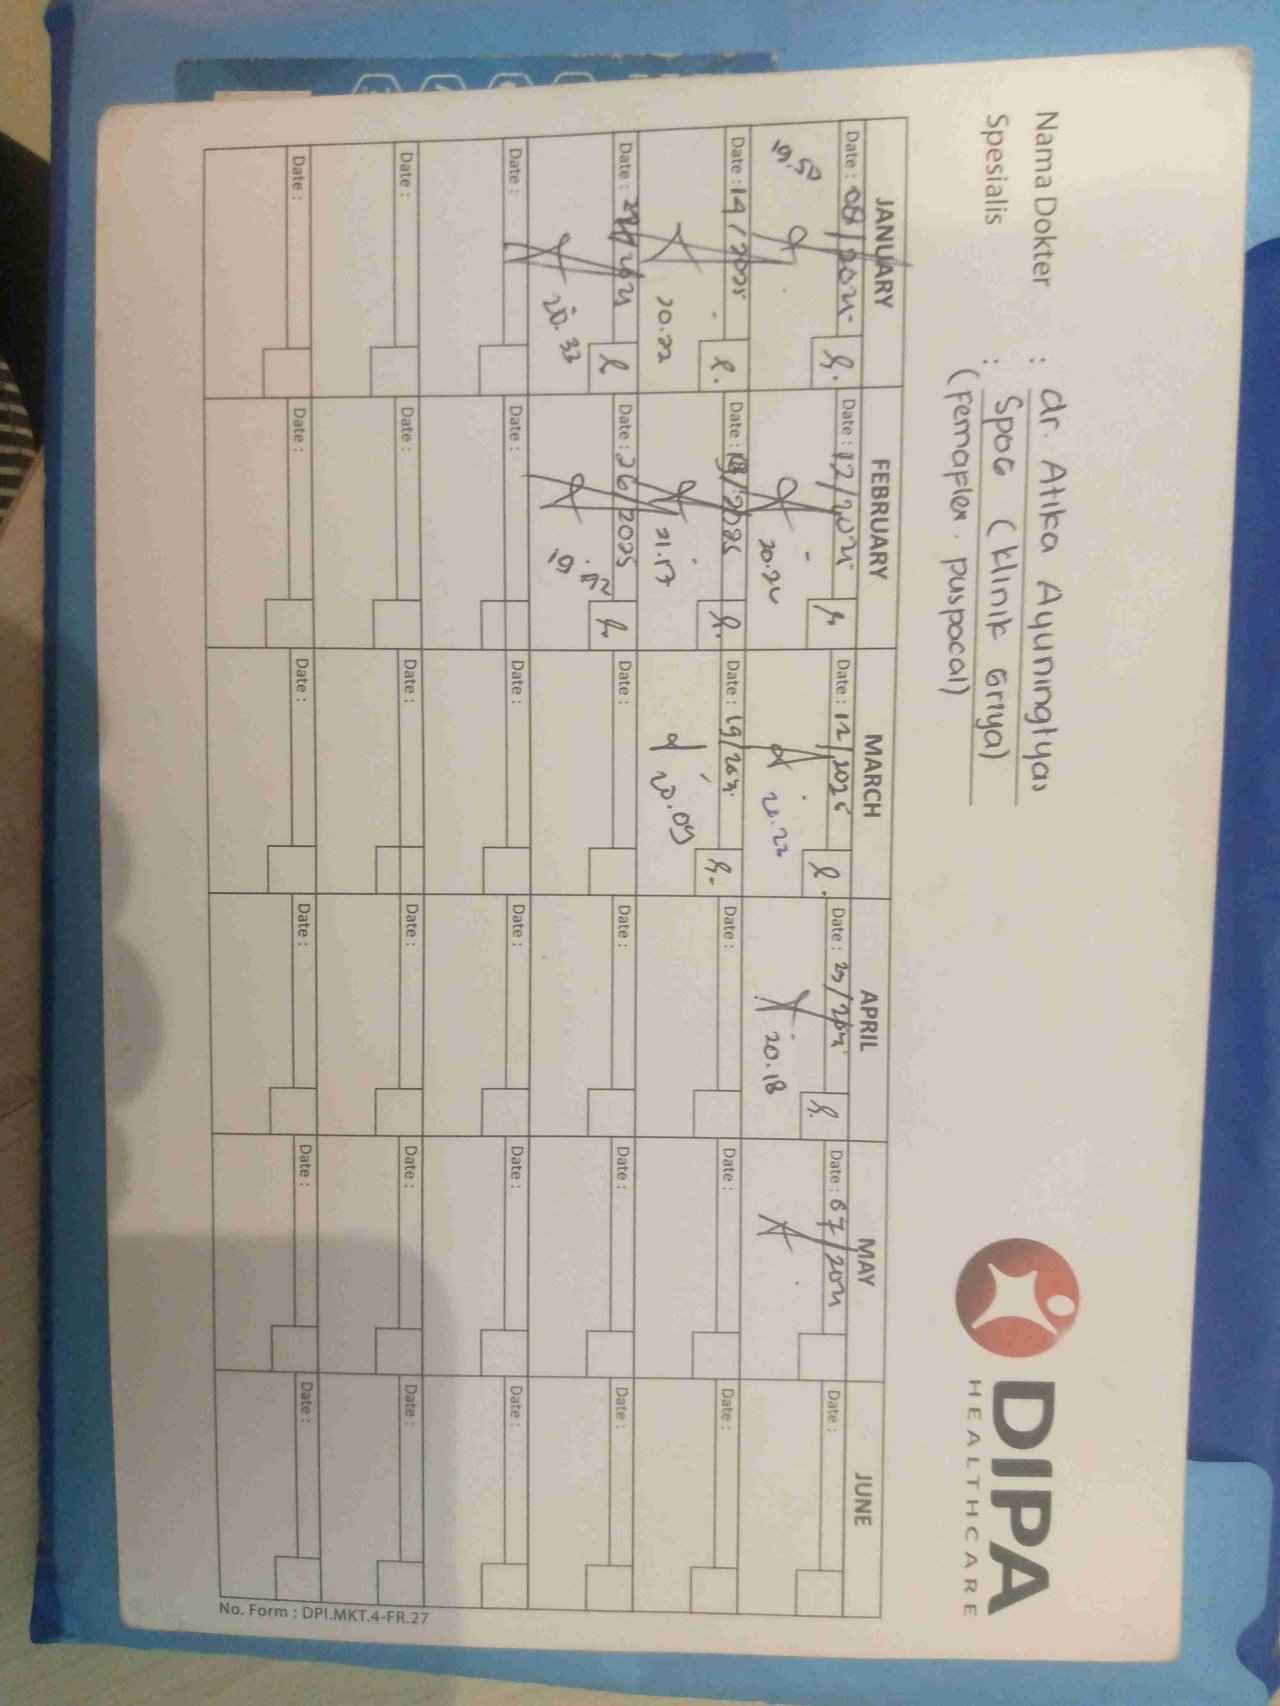 Nama Dokter : dr. Atika Ayuningtyas
Spesialis : SpOG (Klinik Griya)
(Femaplex. puspocal)
DIPA
HEALTHCARE
JANUARY FEBRUARY MARCH APRIL MAY JUNE
Date : 08/2025 Date : 12/2025 Date : 12/2025 Date : 23/2025 Date : 07/2025 Date :
19.50 20.24 20.22 20.18
Date : 14/2025 Date : 19/2025 Date : 19/2025 Date : Date : Date :
20.22 21.17 20.09
Date : /2025 Date : 26/2025 Date : Date : Date : Date :
20.33
Date : Date : Date : Date : Date : Date :
Date : Date : Date : Date : Date : Date :
Date : Date : Date : Date : Date : Date :
No. Form : DPI.MKT.4-FR.27